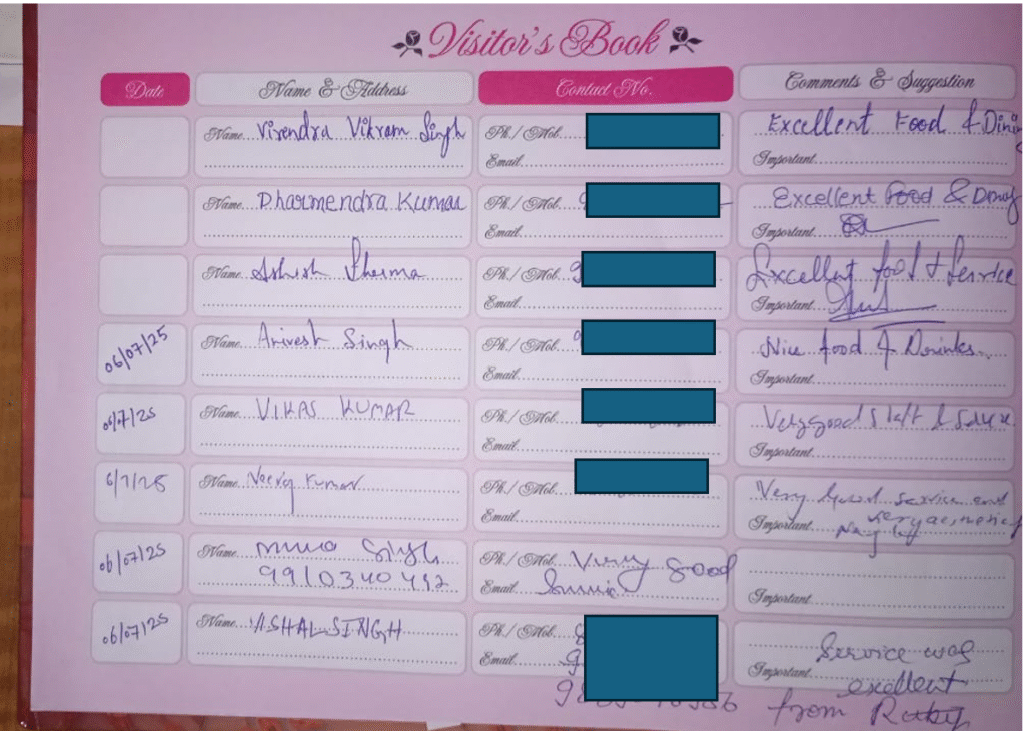 Visitor's Book
Date Name & Address Contact No. Comments & Suggestion
Name. Virendra Vikram Singh Ph./Mob. Excellent Food & Dining
Email. Important.
Name. Dharmendra Kumar Ph./Mob. Excellent Food &
Email. Important.
Name. Ashish Sharma Ph./Mob. Excellent food & Service
Email. Important.
06/07/25 Name. Anivesh Singh Ph./Mob. Nice food & Drinks.
Email. Important.
06/7/25 Name. VIKAS KUMAR Ph./Mob. Very good staff &
Email. Important.
6/7/25 Name. Neeraj Kumar Ph./Mob. Very good service and
Email. Important. very
06/07/25 Name. Singh Ph./Mob. Very good
9910340492 Email. Important.
06/07/25 Name. VISHAL SINGH Ph./Mob. Service was
Email. Important. excellent
from Ruby